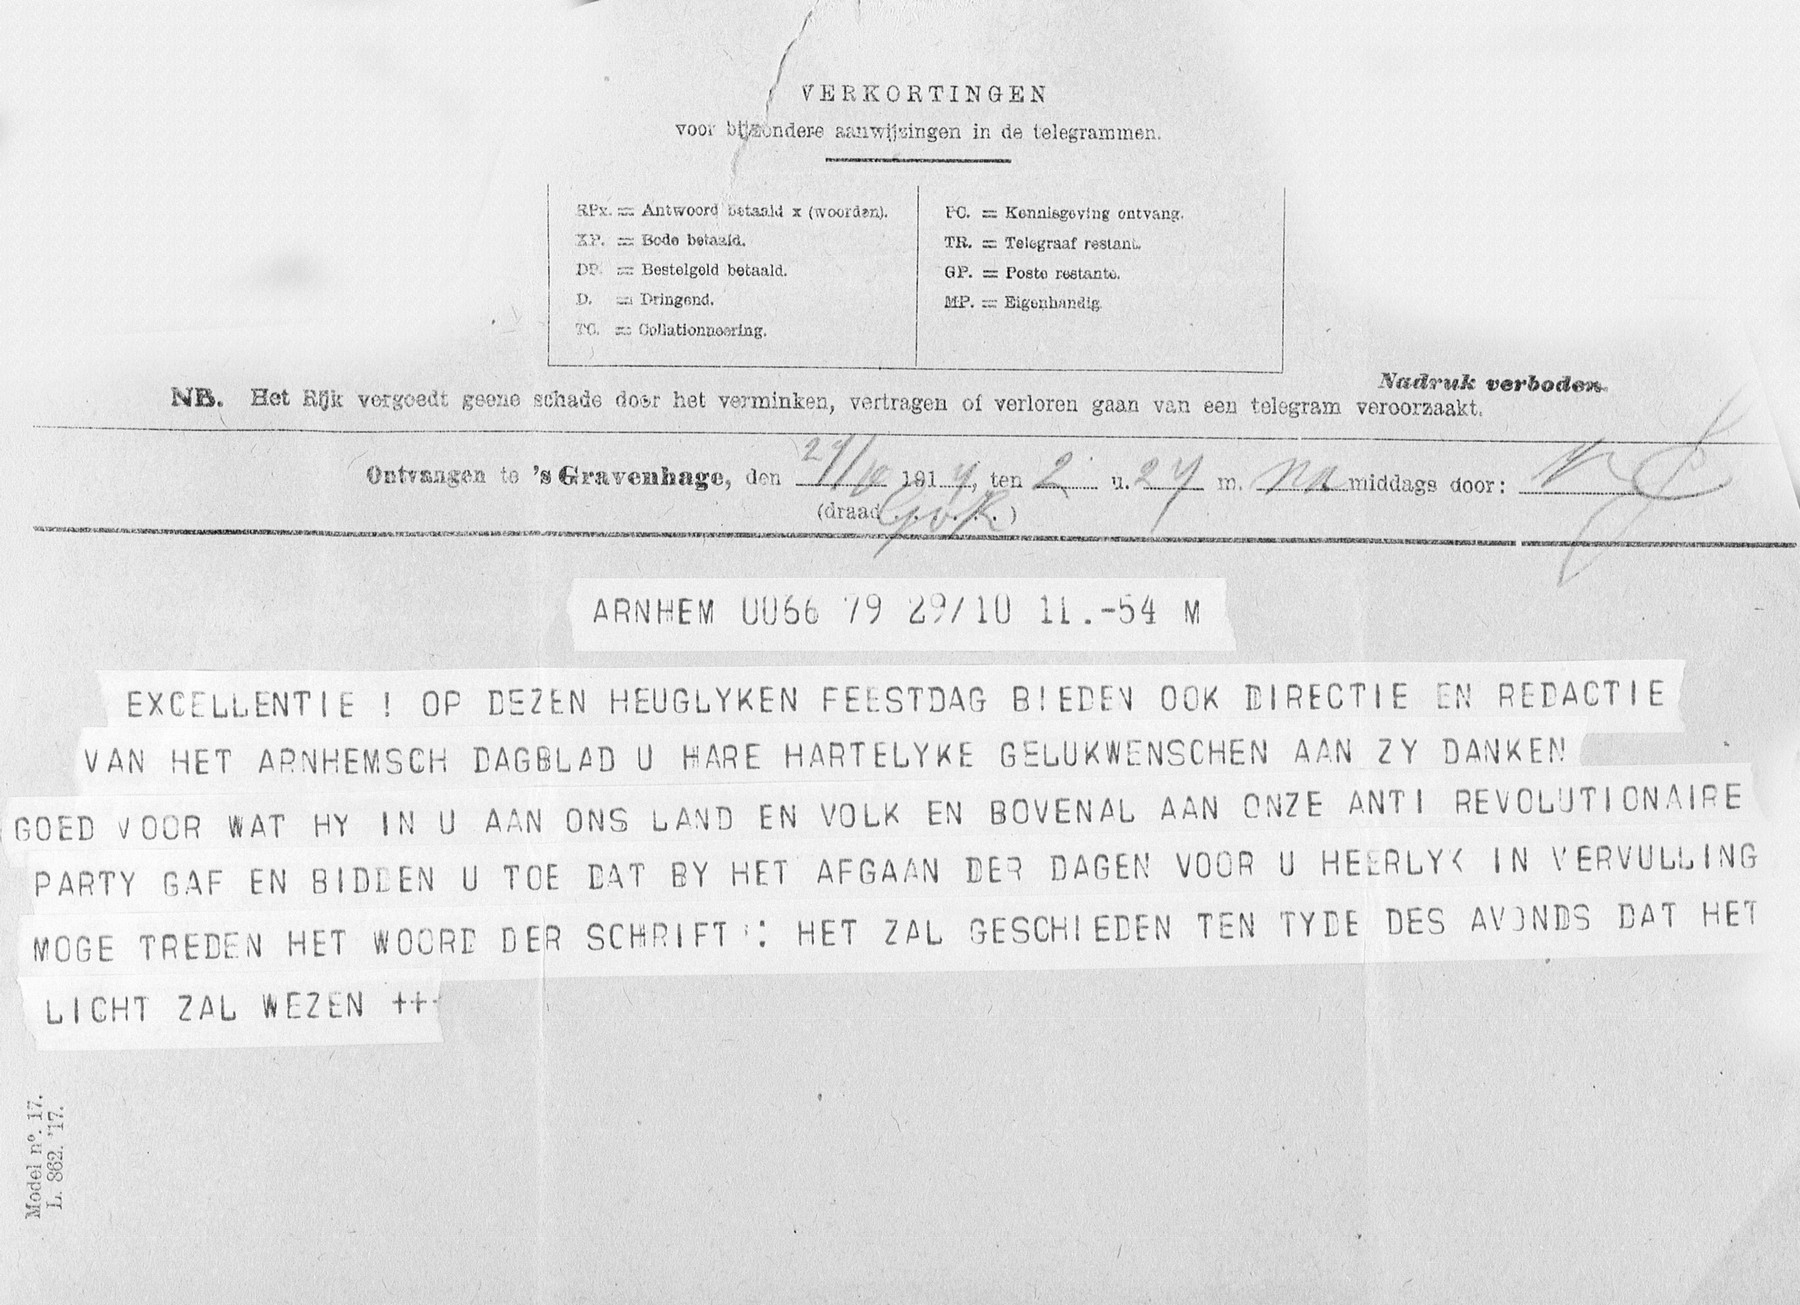 VERKORTINGEN
voor bijzondere aanwijzingen in de telegrammen.
RPx. = Antwoord betaald x (woorden).
XP. = Bode betaald.
DP. = Bestelgeld betaald.
D. = Dringend.
TC. = Collationneering.
PC. = Kennisgeving ontvang.
TR. = Telegraaf restant.
GP. = Poste restante.
MP. = Eigenhandig.
Nadruk verboden.
NB. Het Rijk vergoedt geene schade door het verminken, vertragen of verloren gaan van een telegram veroorzaakt.
Ontvangen te 's Gravenhage, den 29/10 191 , ten 2 u. 27 m. na middags door:
(draad )
ARNHEM 0066 79 29/10 11.-54 M
EXCELLENTIE ! OP DEZEN HEUGLYKEN FEESTDAG BIEDEN OOK DIRECTIE EN REDACTIE
VAN HET ARNHEMSCH DAGBLAD U HARE HARTELYKE GELUKWENSCHEN AAN ZY DANKEN
GOED VOOR WAT HY IN U AAN ONS LAND EN VOLK EN BOVENAL AAN ONZE ANTI REVOLUTIONAIRE
PARTY GAF EN BIDDEN U TOE DAT BY HET AFGAAN DER DAGEN VOOR U HEERLYK IN VERVULLING
MOGE TREDEN HET WOORD DER SCHRIFT : HET ZAL GESCHIEDEN TEN TYDE DES AVONDS DAT HET
LICHT ZAL WEZEN ++
Model nº. 17.
L. 862. '17.